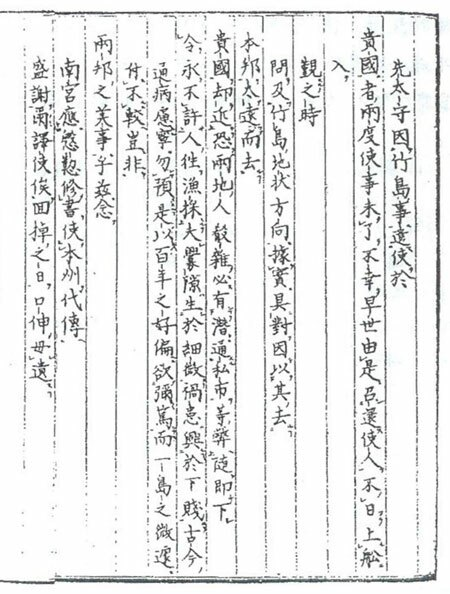 先太守因竹島事遣使於
貴國者兩度使事未了不幸早世由是召還使人不日上舩
入
觀之時
問及竹島地状方向據實具對因以其去
本邦太遠而去
貴國却近恐兩地人殽雜必有潜通私市等弊随即下
令永不許人往漁採夫釁隙生於細微禍患興於下賤古今
通病慮寧勿預是以百年之好偏欲彌篤而一島之微遽
付不較豈非
兩邦之美事乎茲念
南宮應慇懃修書使本州代傳
盛謝爾譯使俟回棹之日口伸毋遺